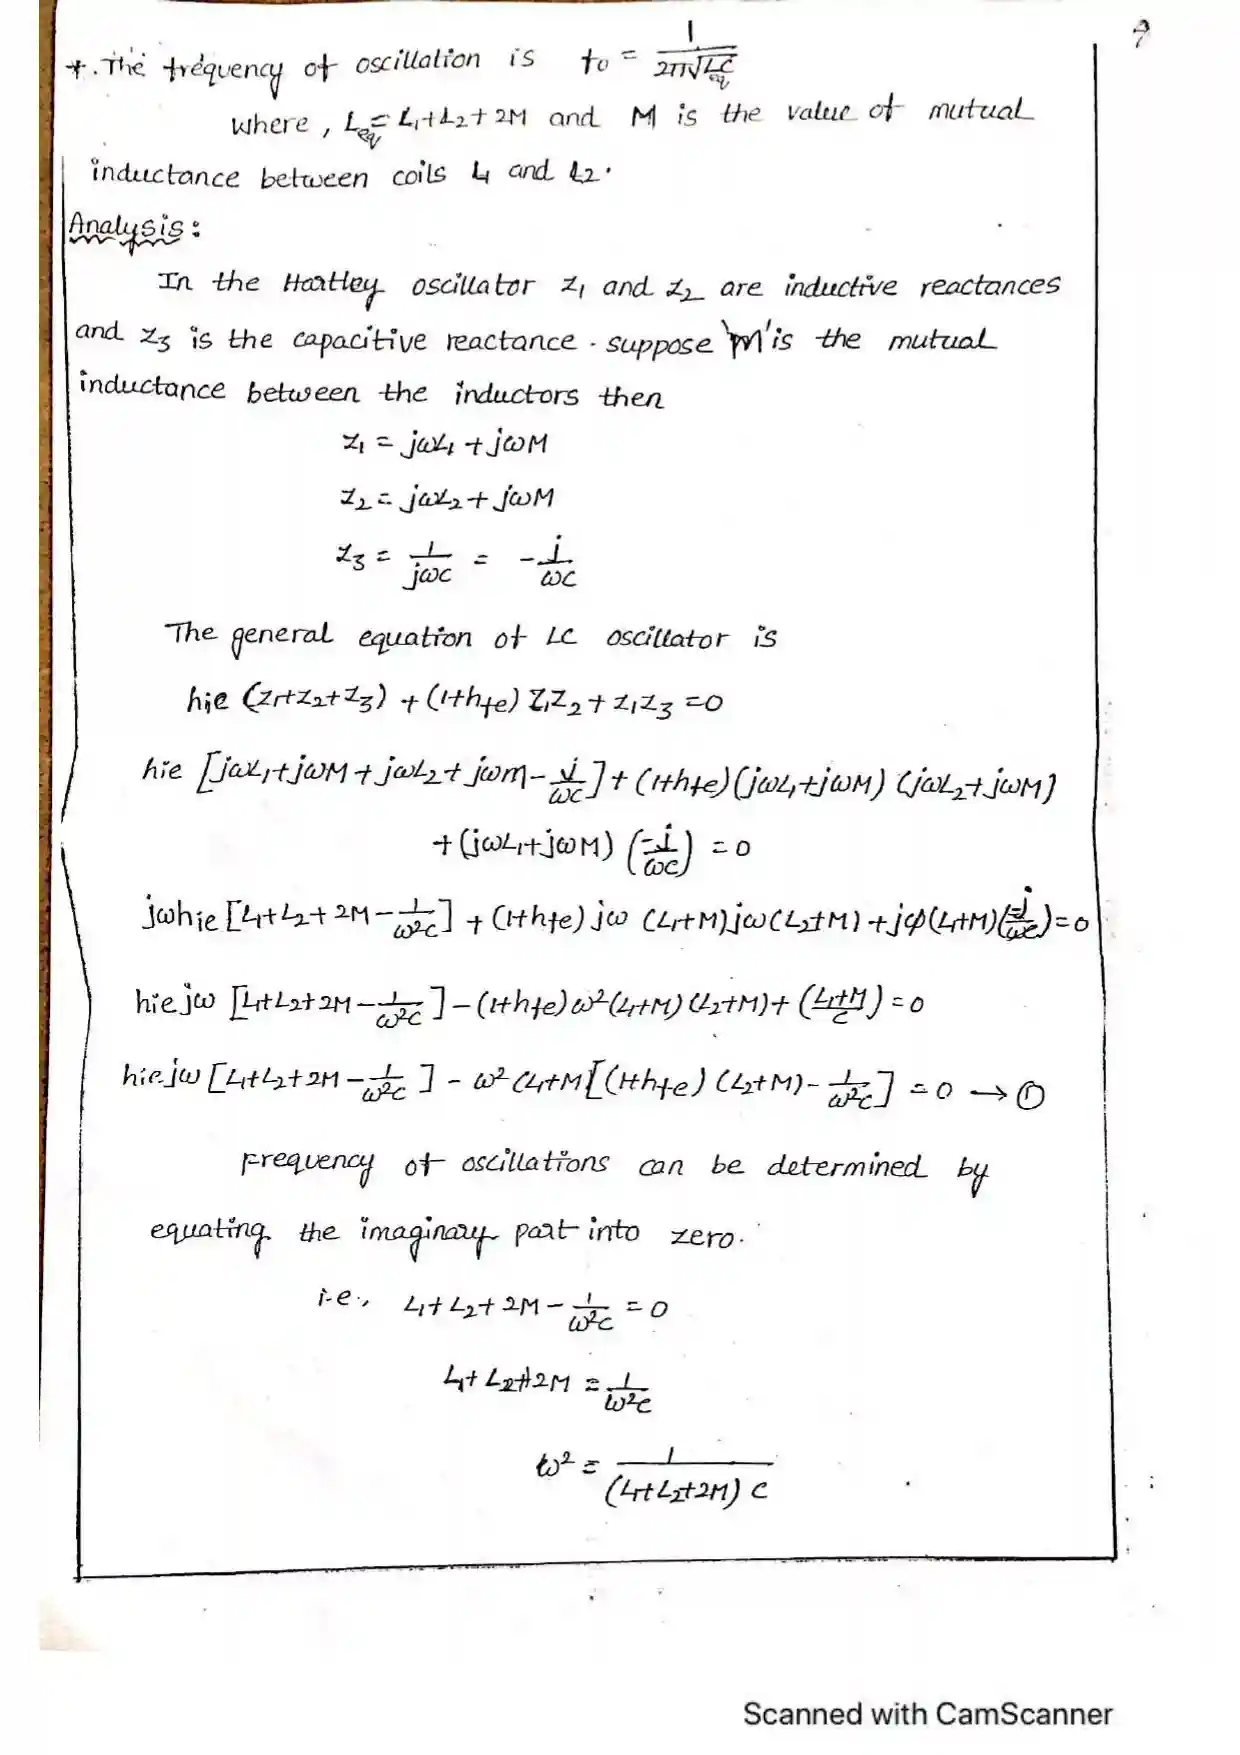 *. The frequency of oscillation is f₀ = 1/(2π√(L_eq C))
where, L_eq = L₁+L₂+2M and M is the value of mutual
inductance between coils L₁ and L₂.
Analysis:
In the Hartley oscillator Z₁ and Z₂ are inductive reactances
and Z₃ is the capacitive reactance. suppose 'M' is the mutual
inductance between the inductors then
Z₁ = jωL₁ + jωM
Z₂ = jωL₂ + jωM
Z₃ = 1/(jωC) = -j/(ωC)
The general equation of LC oscillator is
hie (Z₁+Z₂+Z₃) + (1+hfe) Z₁Z₂ + Z₁Z₃ = 0
hie [jωL₁+jωM+jωL₂+jωm - j/(ωC)] + (1+hfe)(jωL₁+jωM) (jωL₂+jωM)
+ (jωL₁+jωM) (-j/(ωC)) = 0
jωhie [L₁+L₂+2M - 1/(ω²C)] + (1+hfe) jω (L₁+M)jω(L₂+M) + jω(L₁+M)(-j/(ωC)) = 0
hiejω [L₁+L₂+2M - 1/(ω²C)] - (1+hfe)ω²(L₁+M)(L₂+M) + ((L₁+M)/C) = 0
hiejω [L₁+L₂+2M - 1/(ω²C)] - ω²(L₁+M[(1+hfe) (L₂+M) - 1/(ω²C)] = 0 → ①
Frequency of oscillations can be determined by
equating the imaginary part into zero.
i.e., L₁+L₂+2M - 1/(ω²C) = 0
L₁+L₂+2M = 1/(ω²C)
ω² = 1/((L₁+L₂+2M) C)
Scanned with CamScanner